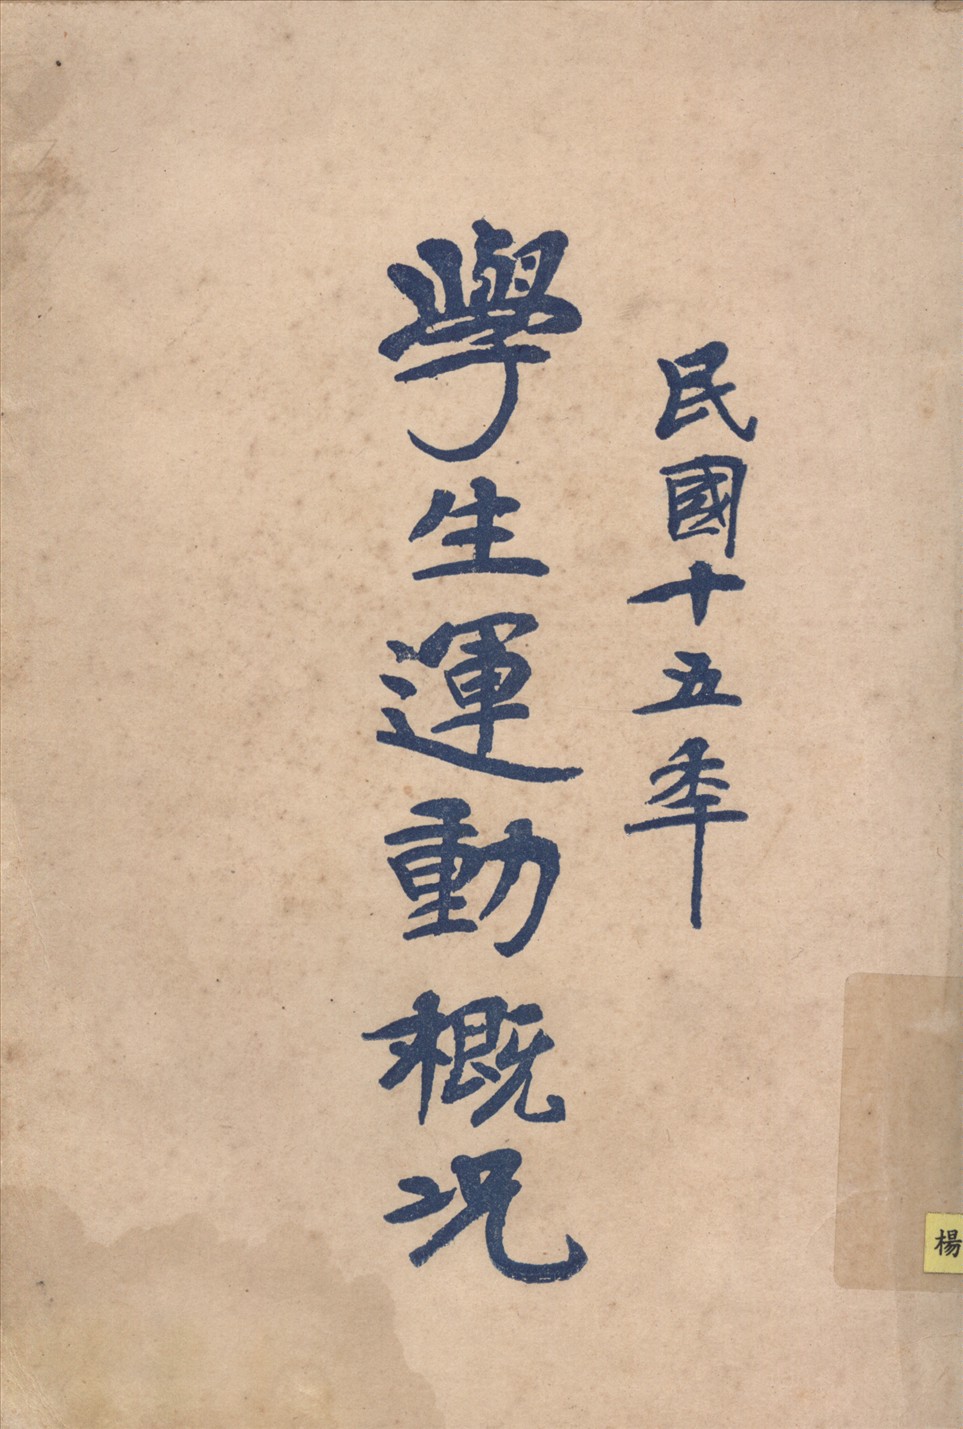 民國十五年
學生運動概況
楊